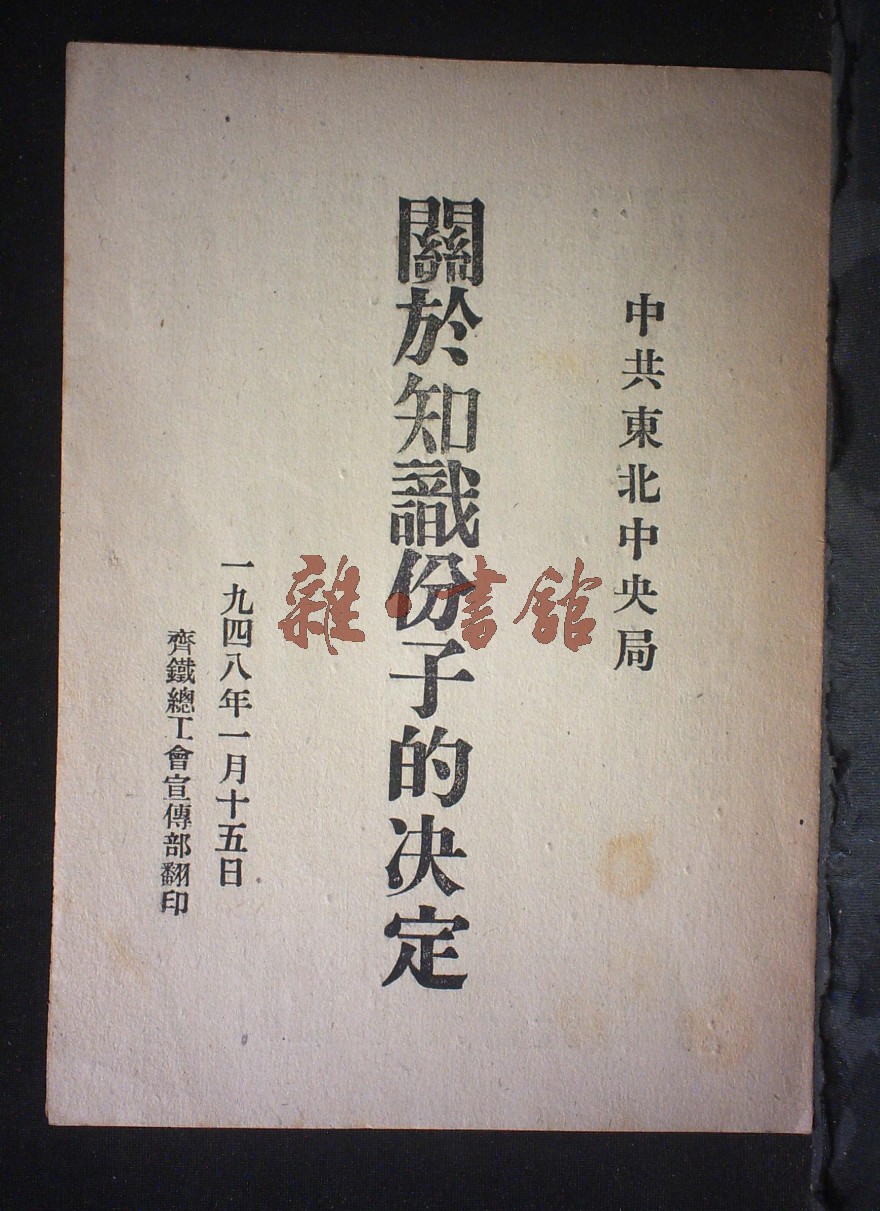 中共東北中央局
關於知識份子的决定
一九四八年一月十五日
齊鐵總工會宣傳部翻印
雜·書館